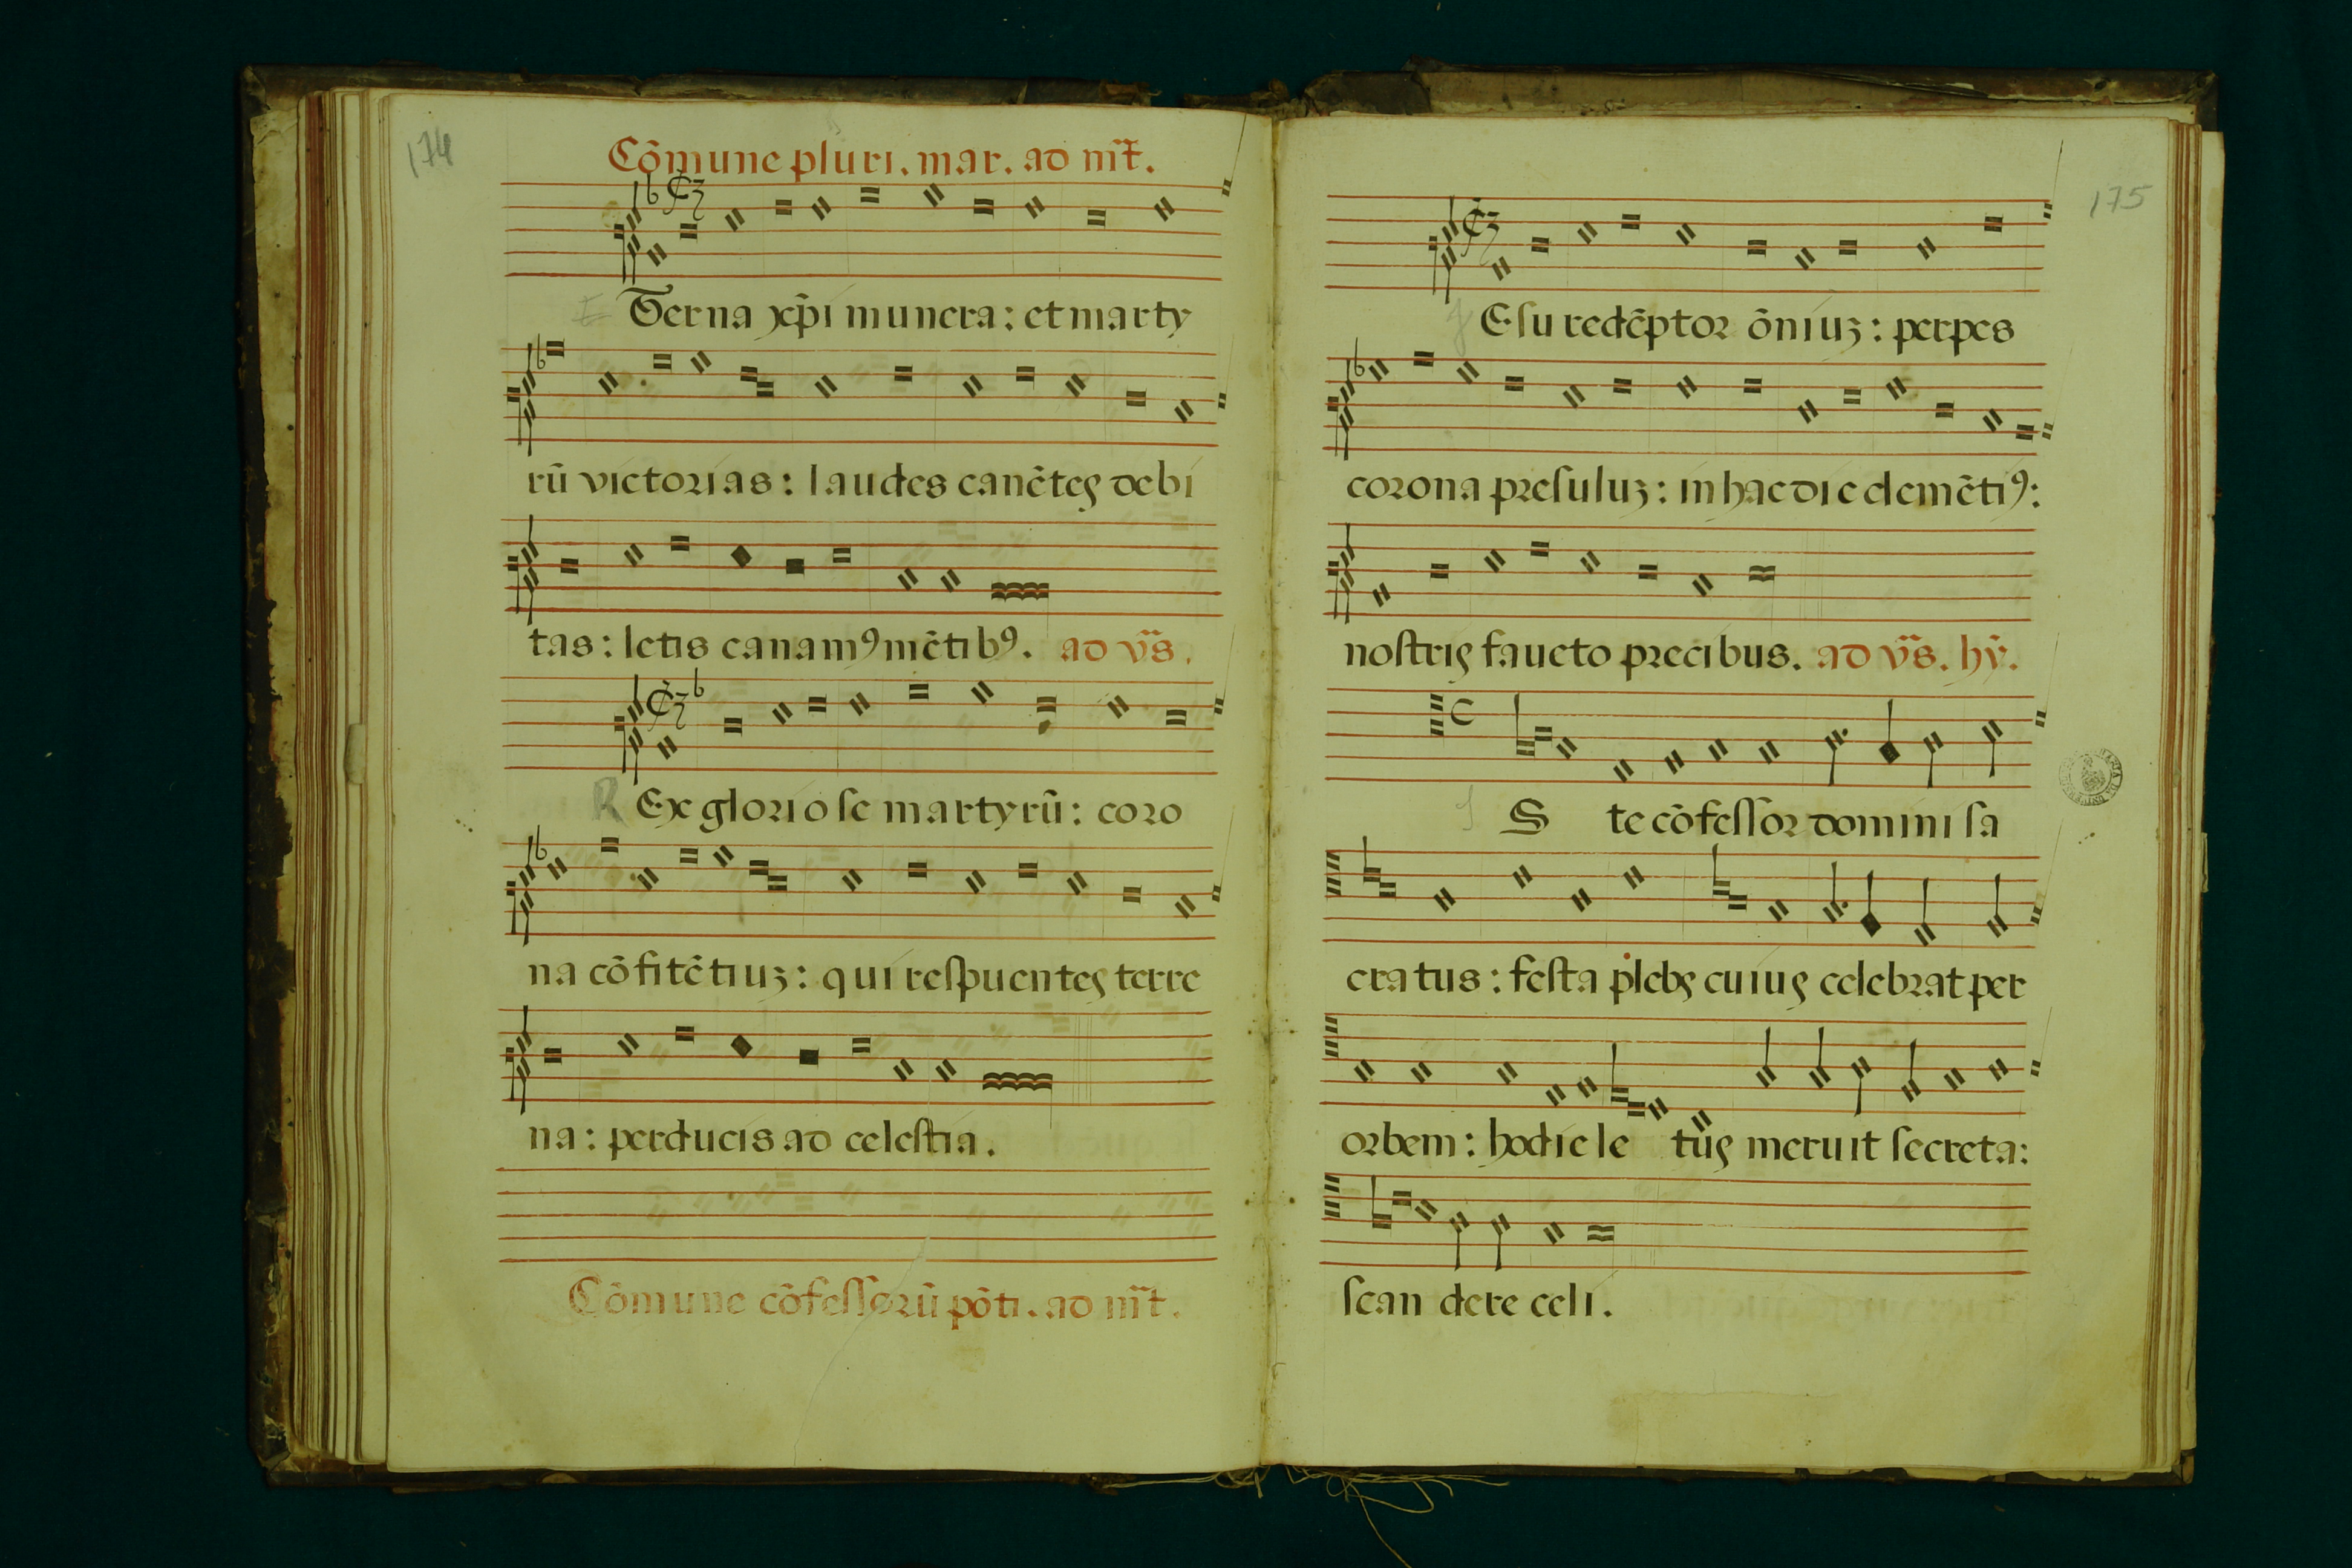 174
Cōmune pluri. mar. ad m̄t.
Eterna xp̄i munera: et marty
rū victorias: laudes canētes debi
tas: letis canamꝯ mētibꝯ. ad v̄s.
Rex gloriose martyrū: coro
na cōfitētiuꝫ: qui reſpuentes terre
na: perducis ad celeſtia.
Cōmune cōfeſſorū pōti. ad m̄t.
175
Jeſu redēptor ōniuꝫ: perpes
corona preſuluꝫ: in hac die clemētiꝯ:
noſtris faueto precibus. ad v̄s. hȳ.
C
I S te cōfeſſor domini ſa
cratus: feſta plebs cuius celebrat per
orbem: hodie le tus meruit ſecreta:
ſcan dere celi.